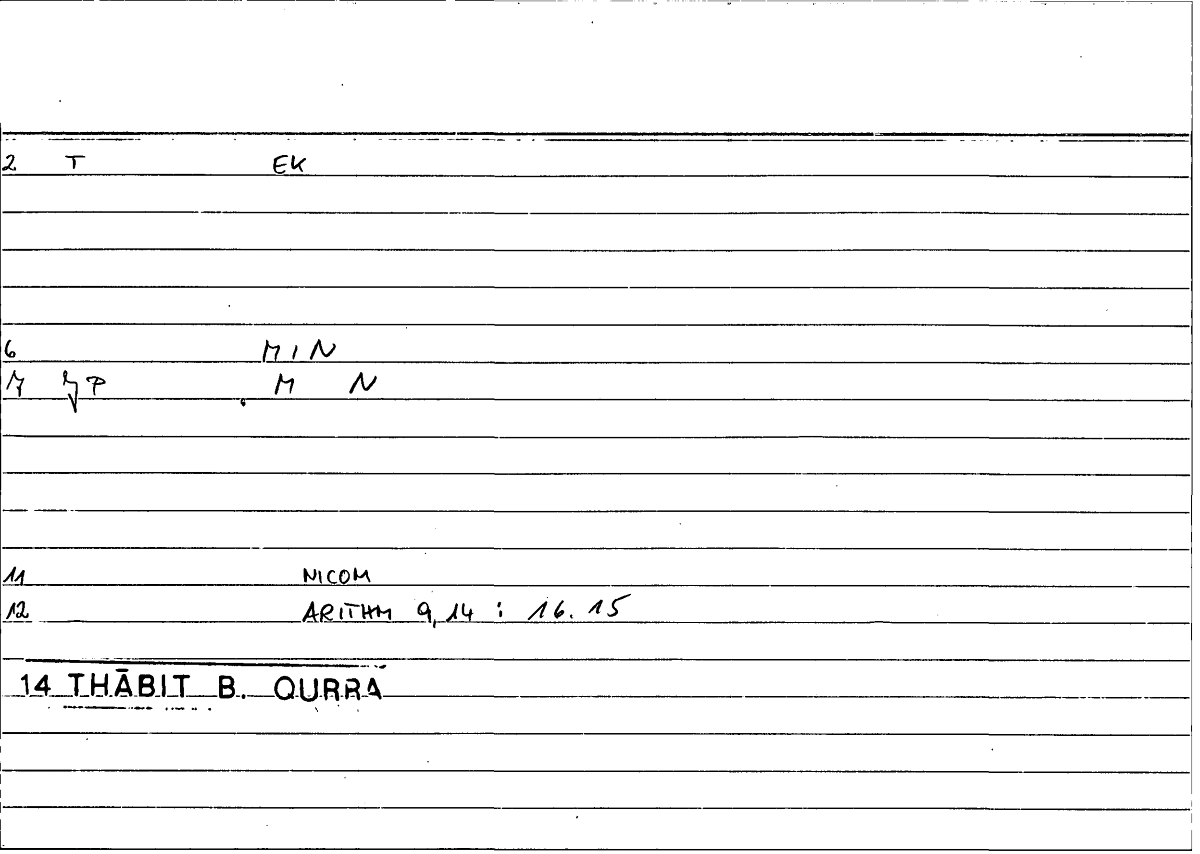 2 T EK
6 MIN
7 M N
11 NICOM
12 ARITHM 9,14 : 16.15
14 THĀBIT B. QURRA